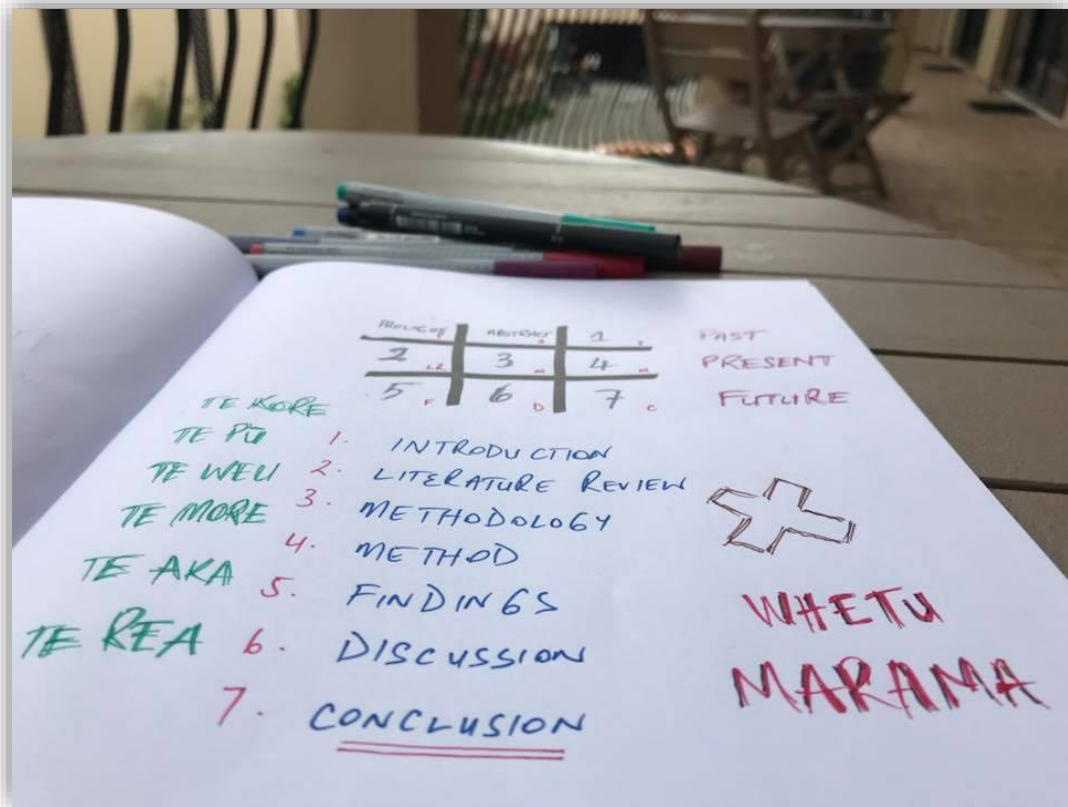 PROLOGUE ABSTRACT 1 PAST
2 3 4 PRESENT
5 6 7 FUTURE
TE KORE
TE PŪ 1. INTRODUCTION
TE WEU 2. LITERATURE REVIEW
TE MORE 3. METHODOLOGY
4. METHOD
TE AKA 5. FINDINGS
TE REA 6. DISCUSSION
7. CONCLUSION
WHETU
MARAMA